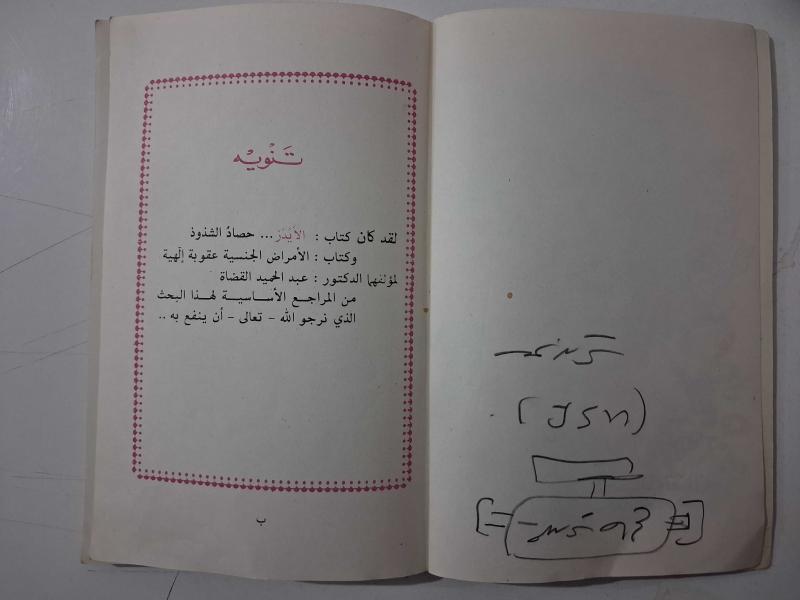 تَنْويْه
لقد كان كتاب : الأيْدْز ... حصادُ الشذوذ
وكتاب : الأمراض الجنسية عقوبة إلٰهية
لمؤلفهما الدكتور : عبد الحميد القضاة
من المراجع الأساسية لهذا البحث
الذي نرجو الله - تعالى - أن ينفع به ..
ب